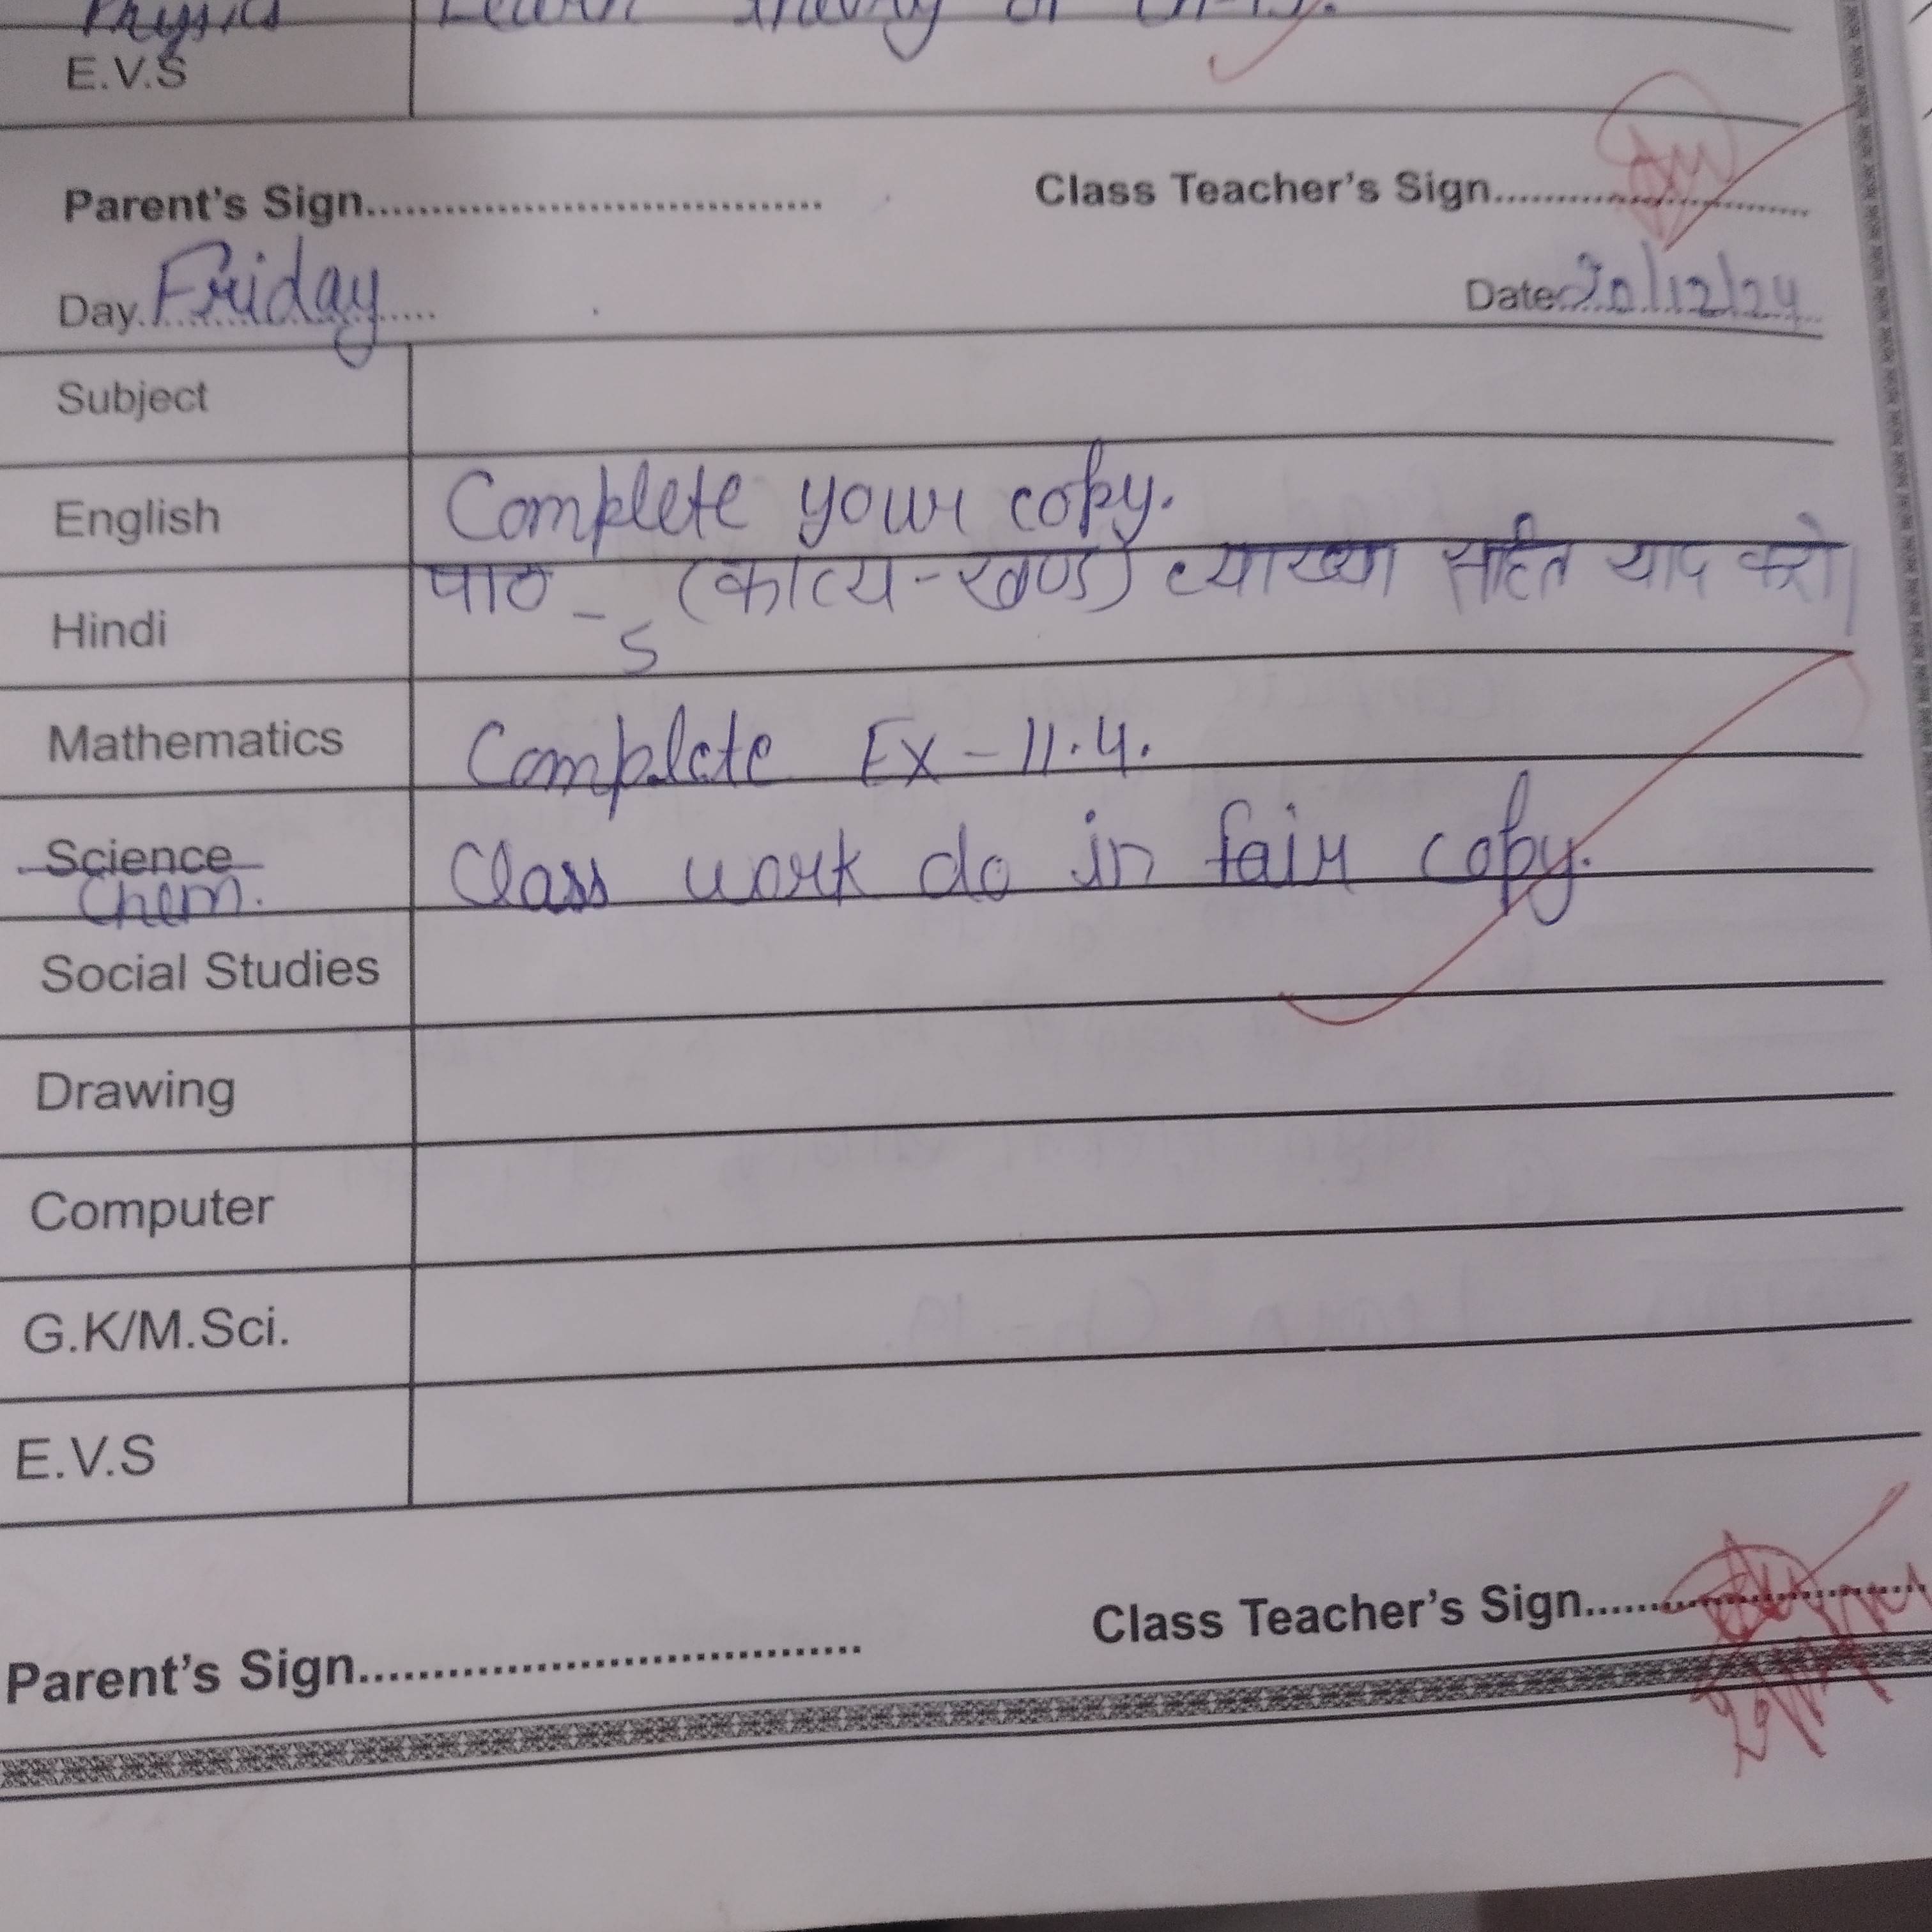 Physics Learn theory of Ch-13.
E.V.S
Parent's Sign.................................... Class Teacher's Sign.........................
Day. Friday Date: 20/12/24
Subject
English Complete your copy.
Hindi पाठ - 5 (काव्य-खण्ड) व्याख्या सहित याद करो।
Mathematics Complete Ex - 11.4.
Science Chem. Class work do in fair copy.
Social Studies
Drawing
Computer
G.K/M.Sci.
E.V.S
Parent's Sign.................................... Class Teacher's Sign.........................